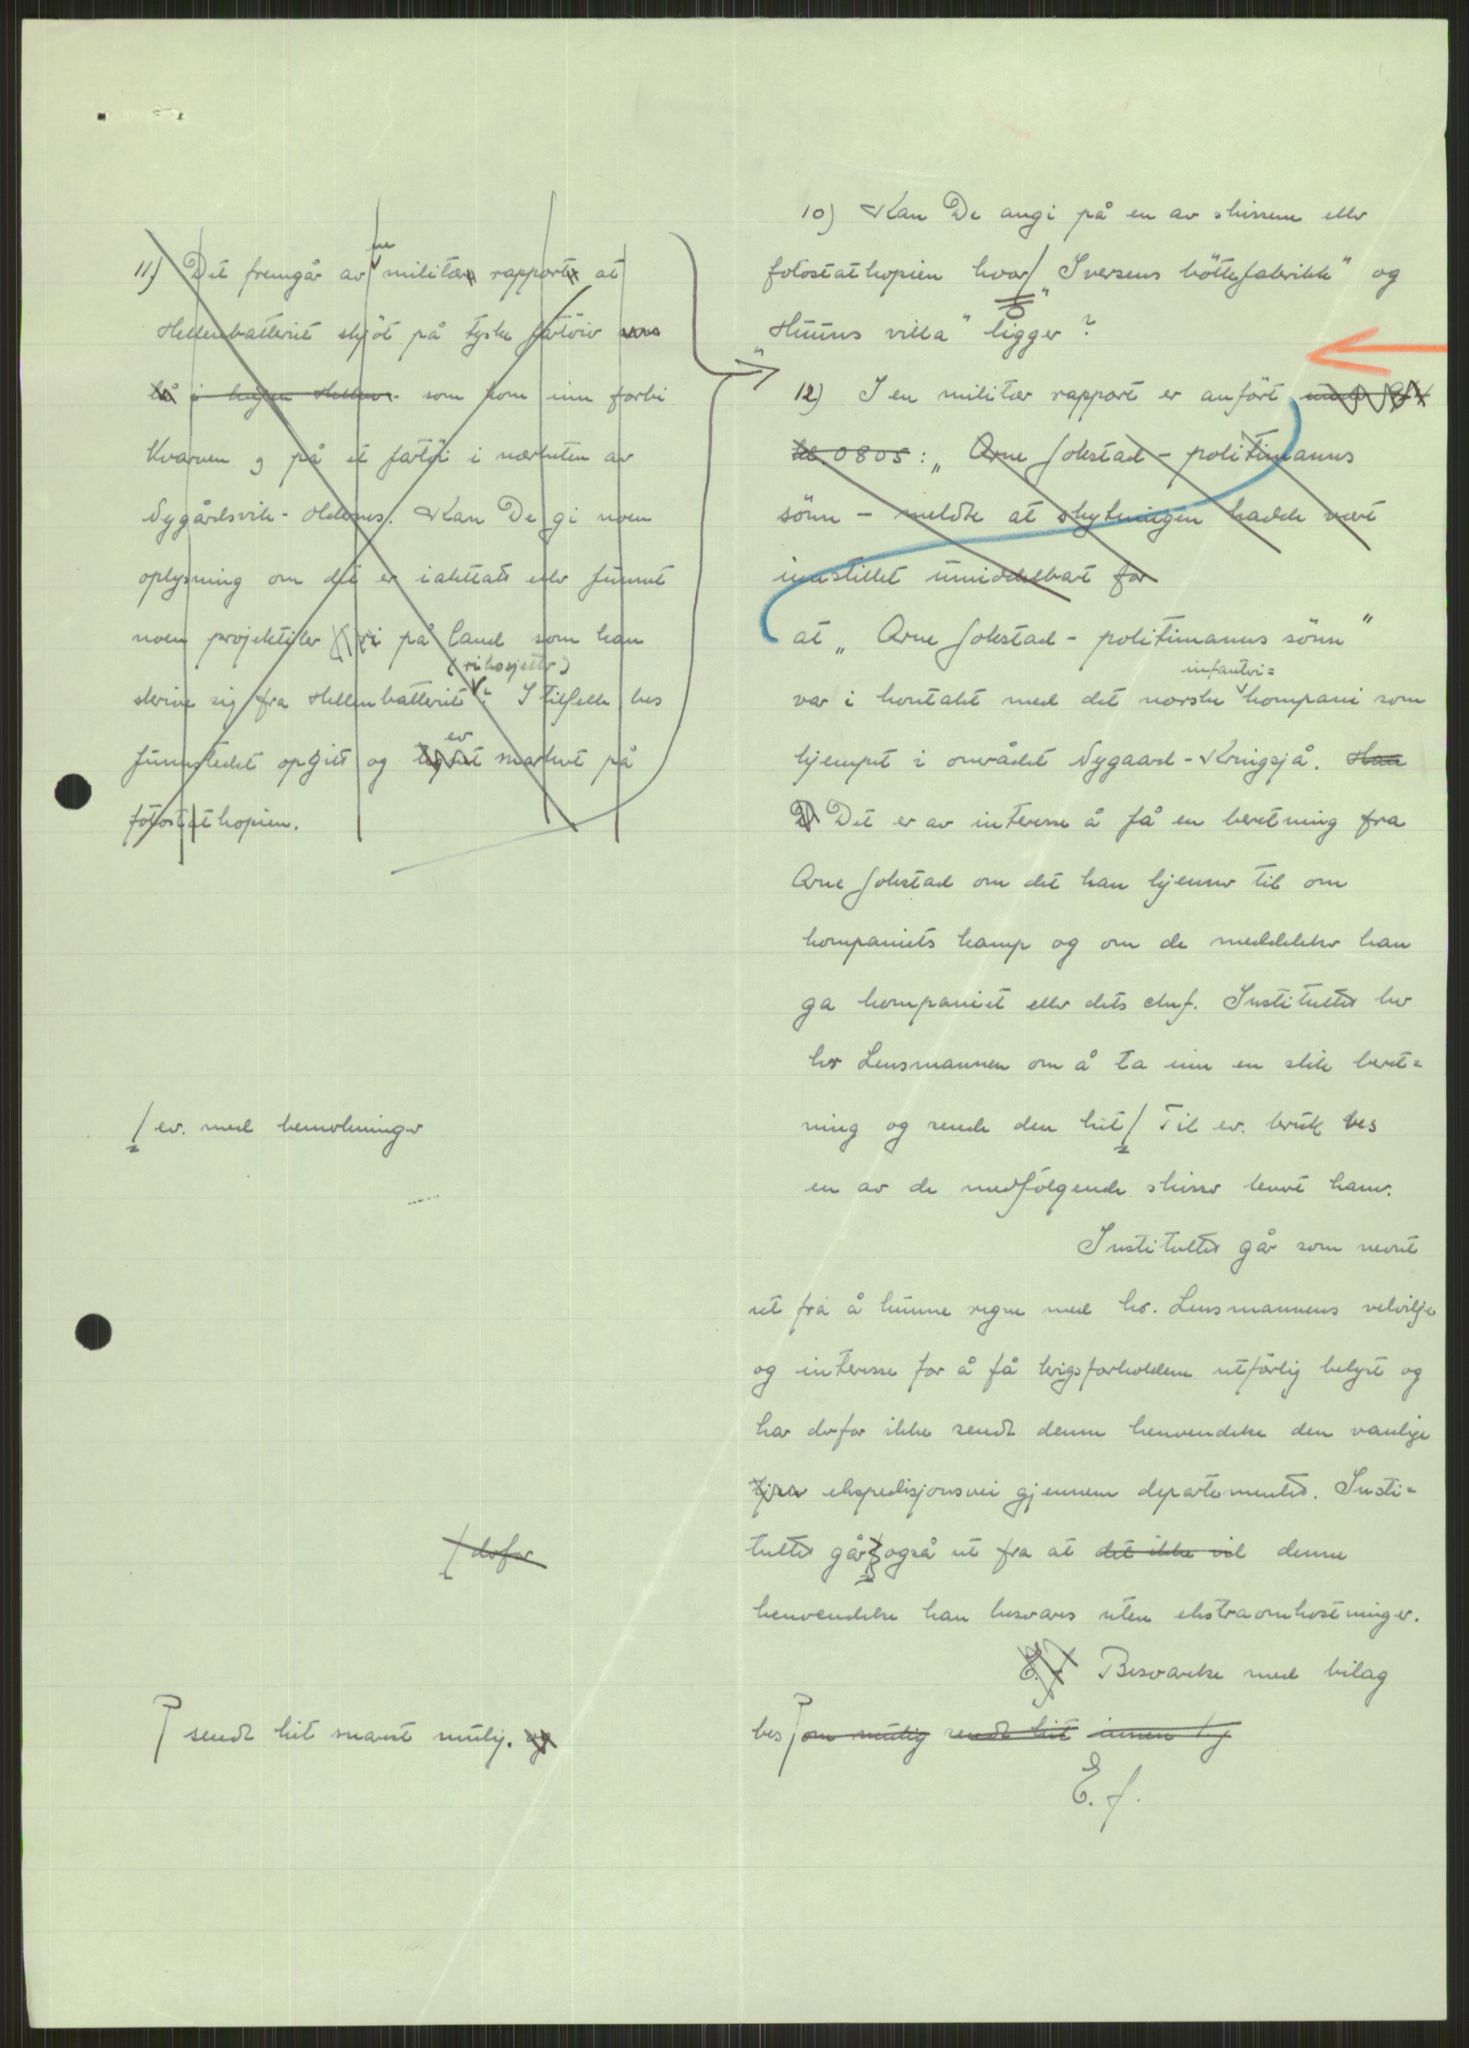 10) Kan De angi på en av skissene eller
fotostatkopien hvor "Iversens bøttefabrikk" og
"Huuns villa" ligger?
11) Det fremgår av en militær rapport at
Hellenbatteriet skjöt på tyske fartöier som
lå i bugten Hellen- som kom inn forbi
Kvarven og på et fartöi i nærheten av
Nygårdsvik - Holenes. Kan De gi noen
oplysning om det er iakttatt eller funnet
noen projektiler i på land som kan
(rikosjetter)
skrive sig fra Hellenbatteriet? I tilfelle bes
funnstedet opgitt og ev markert på
fotostatkopien.
12) I en militær rapport er anfört
kl. 0805: "Arne Jokstad - politimanns
sönn - meldte at skytningen hadde vært
innstillet umiddelbart før
at "Arne Jokstad - politimanns sönn"
infanteri=
var i kontakt med det norske kompani som
kjempet i området Nygaard - Kringsjå. Han
Det er av interesse å få en beretning fra
Arne Jokstad om det han kjenner til om
kompaniets kamp og om de meddelelser han
ga kompaniet eller dets chef. Instituttet ber
hr Lensmannen om å ta inn en slik beret=
ning og sende den hit / Til ev. bruk bes
/ ev. med bemerkninger
en av de medfölgende skisser levert ham.
Instituttet går som nevnt
ut fra å kunne regne med hr. Lensmannens velvilje
og interesse for å få krigsforholdene utförlig belyst og
har derfor ikke sendt denne henvendelse den vanlige
tjen ekspedisjonsvei gjennem departementet. Insti=
tuttet går også ut fra at det ikke vil denne
/ derfor
henvendelse kan besvares uten ekstraomkostninger.
E.f. Besvarelse med bilag
bes om mulig sendt hit innen
sendt hit snarest mulig. og
E. f.